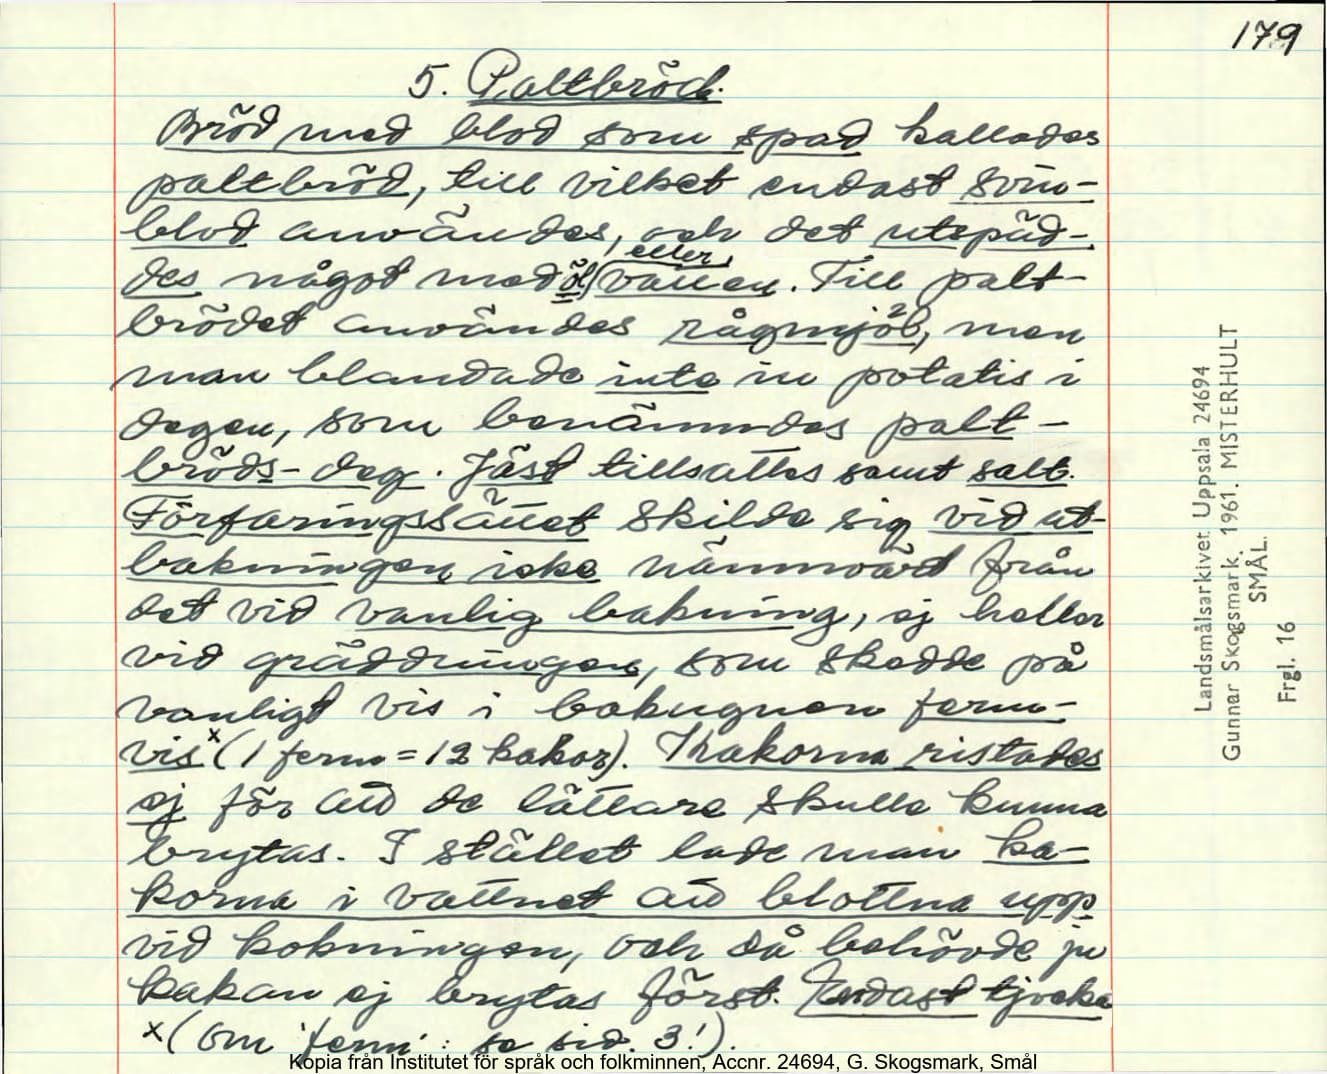 179
5. Paltbröd.
Bröd med blod som spad kallades
paltbröd, till vilket endast svin-
blod användes, och det utspäd-
des något med öl/eller vatten. Till palt-
brödet användes rågmjöl, men
man blandade inte in potatis i
degen, som benämndes palt-
bröds-deg. Jäst tillsattes samt salt.
Förfaringssättet skilde sig vid ut-
bakningen icke nämnvärt från
det vid vanlig bakning, ej heller
vid gräddningen, som skedde på
vanligt vis i bakugnen ferm-
vis x (1 ferm = 12 kakor). Kakorna ristades
ej för att de lättare skulle kunna
brytas. I stället lade man ka-
korna i vattnet att blottna upp
vid kokningen, och då behövde ju
kakan ej brytas först. Endast tjocka
x (Om 'ferm': se sid. 3!).
Kopia från Institutet för språk och folkminnen, Accnr. 24694, G. Skogsmark, Smål
Landsmålsarkivet Uppsala 24694
Gunnar Skogsmark. 1961. MISTERHULT
SMÅL.
Frgl. 16